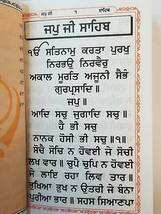 ਜਪੁ ਜੀ ਸਾਹਿਬ
ੴ ਸਤਿਨਾਮੁ ਕਰਤਾ ਪੁਰਖੁ
ਨਿਰਭਉ ਨਿਰਵੈਰੁ
ਅਕਾਲ ਮੂਰਤਿ ਅਜੂਨੀ ਸੈਭੰ
ਗੁਰਪ੍ਰਸਾਦਿ ॥
ਜਪੁ ॥
ਆਦਿ ਸਚੁ ਜੁਗਾਦਿ ਸਚੁ ॥
ਹੈ ਭੀ ਸਚੁ
ਨਾਨਕ ਹੋਸੀ ਭੀ ਸਚੁ ॥੧॥
ਸੋਚੈ ਸੋਚਿ ਨ ਹੋਵਈ ਜੇ ਸੋਚੀ
ਲਖ ਵਾਰ ॥ ਚੁਪੈ ਚੁਪਿ ਨ ਹੋਵਈ
ਜੇ ਲਾਇ ਰਹਾ ਲਿਵ ਤਾਰ ॥
ਭੁਖਿਆ ਭੁਖ ਨ ਉਤਰੀ ਜੇ ਬੰਨਾ
ਪੁਰੀਆ ਭਾਰ ॥ ਸਹਸ ਸਿਆਣਪਾ